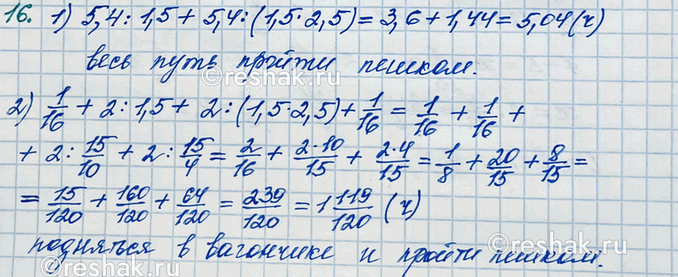 16. 1) 5,4 : 1,5 + 5,4 : (1,5·2,5) = 3,6 + 1,44 = 5,04 (ч)
весь путь пройти пешком.
2) 1/16 + 2 : 1,5 + 2 : (1,5·2,5) + 1/16 = 1/16 + 1/16 +
+ 2 : 15/10 + 2 : 15/4 = 2/16 + 2·10/15 + 2·4/15 = 1/8 + 20/15 + 8/15 =
= 15/120 + 160/120 + 64/120 = 239/120 = 1 119/120 (ч)
подняться в вагончике и пройти пешком.
©Reshak.ru